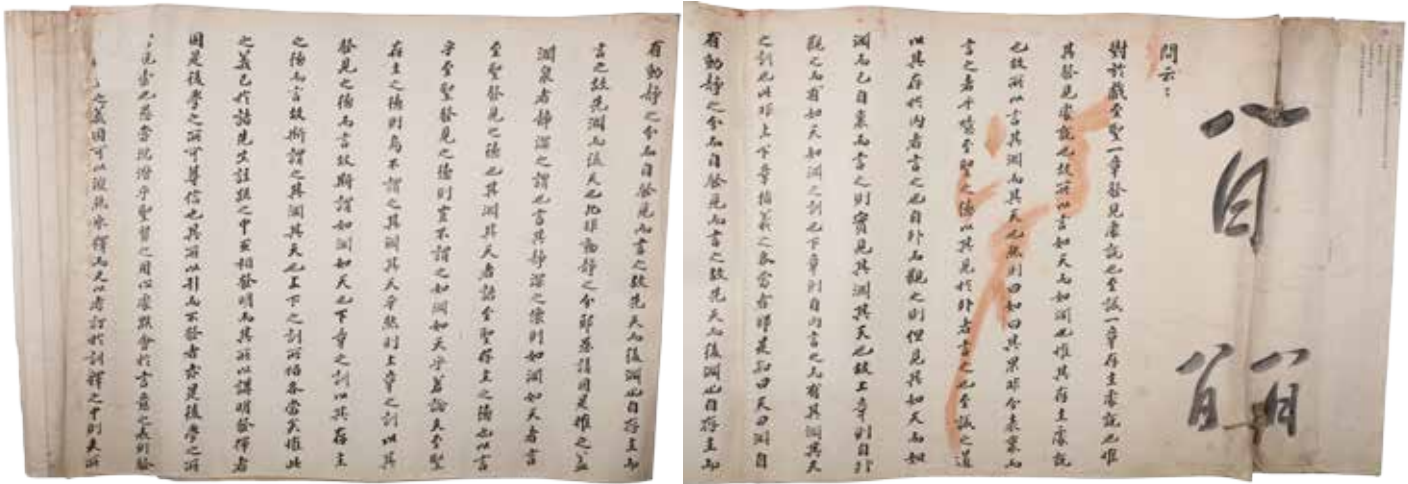 問云〻
對於戱至聖一章發見處說也至誠一章存主處說也惟
其發見處說也故所以言如天而如淵也惟其存主處說
也故所以言其淵而其天也然則曰如曰其果非表裏而
言之者乎噫至聖之德以其見於外者言之也至誠之道
以其存於內者言之也自外而觀之則但見其如天而如
淵而已自裏而言之則實見其淵其天也故上章則自外
觀之而有如天如淵之訓也下章則自內言之而有其淵其天
之訓也此非上下章指義之各當者耶是知曰天曰淵自
有動靜之分而自發見而言之故先天而後淵也自存主而
有動靜之分而自發見而言之故先天而後淵也自存主而
言之故先淵而後天也此非動靜之分耶請因是推之盖
淵泉者靜深之謂也言其靜深之德則如淵如天者言
至聖發見之德也其淵其天者語至聖存主之德也以言
乎至聖發見之德則豈不謂之如淵如天乎若論夫至聖
存主之德則烏不謂之其淵其天乎然則上章之訓以其
發見之德而言故斯謂如淵如天也下章之訓以其存主
之德而言故斯謂之其淵其天也上下之訓所指各當矣惟此
之義已於諸先生註疏之中互相發明而其所以講明發揮者
固是後學之所可尊信也其所以引而不發者亦是後學之所
也愚嘗沈潛乎聖賢之用心處默會於言意之表則發
之義固可以渙然氷釋而又以考訂於訓釋之中則夫所